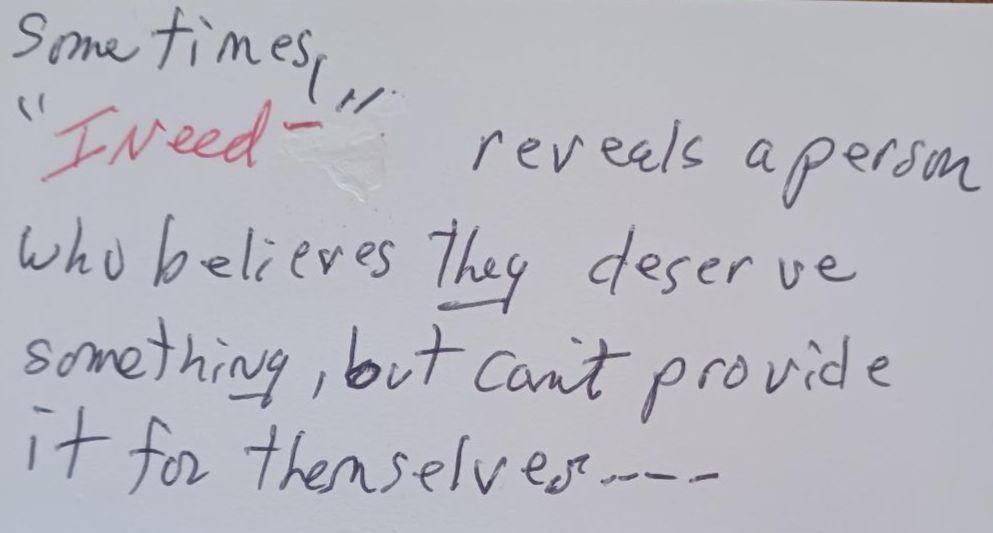 Sometimes,
"I Need-" reveals a person
who believes they deserve
something, but can't provide
it for themselves----